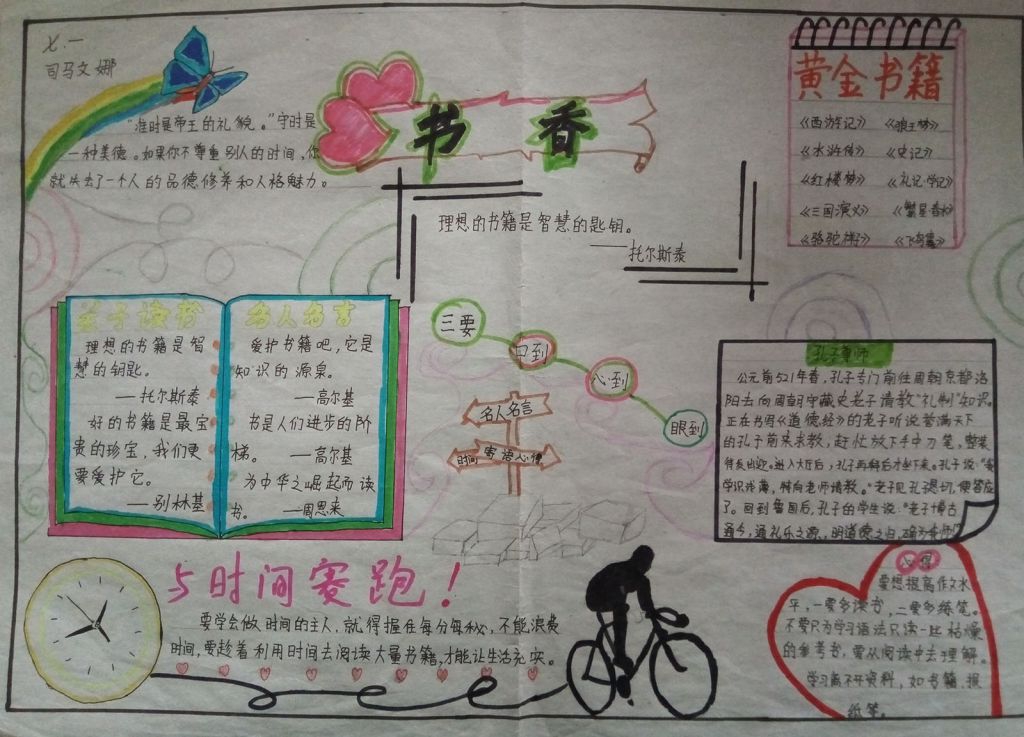 七.一
司马文娜
书 香
"准时是帝王的礼貌。"守时是
一种美德。如果你不尊重别人的时间，你
就失去了一个人的品德修养和人格魅力。
理想的书籍是智慧的匙钥。
——托尔斯泰
黄金书籍
《西游记》 《狼王梦》
《水浒传》 《史记》
《红楼梦》 《礼记·学记》
《三国演义》 《繁星春水》
《骆驼祥子》 《飞鸟集》
名人名言
理想的书籍是智
慧的钥匙。
——托尔斯泰
好的书籍是最宝
贵的珍宝，我们更
要爱护它。
——别林基
爱护书籍吧，它是
知识的源泉。
——高尔基
书是人们进步的阶
梯。 ——高尔基
为中华之崛起而读
书。 ——周恩来
三要
口到
心到
眼到
名人名言
时间 寄语心得
孔子尊师
公元前521年春，孔子专门前往周朝京都洛
阳去向周朝守藏史老子请教"礼制"知识
正在书写《道德经》的老子听说誉满天下
的孔子前来求教，赶忙放下手中刀笔，整装
待发出迎。进入大厅后，孔子再拜后才坐下来。孔子说："
学识浅薄，特向老师请教。"老子见孔子恳切，便答应
了。回到鲁国后，孔子的学生说："老子博古
通今，通礼乐之源，明道德之归，确
与时间赛跑！
要学会做时间的主人，就得握住每分每秒，不能浪费
时间，要趁着利用时间去阅读大量书籍，才能让生活充实。
心得
要想提高作文水
平，一要多读书，二要多练笔。
不要只为学习语法只读一些枯燥
的参考书，要从阅读中去理解。
学习离不开资料，如书籍.报
纸等。